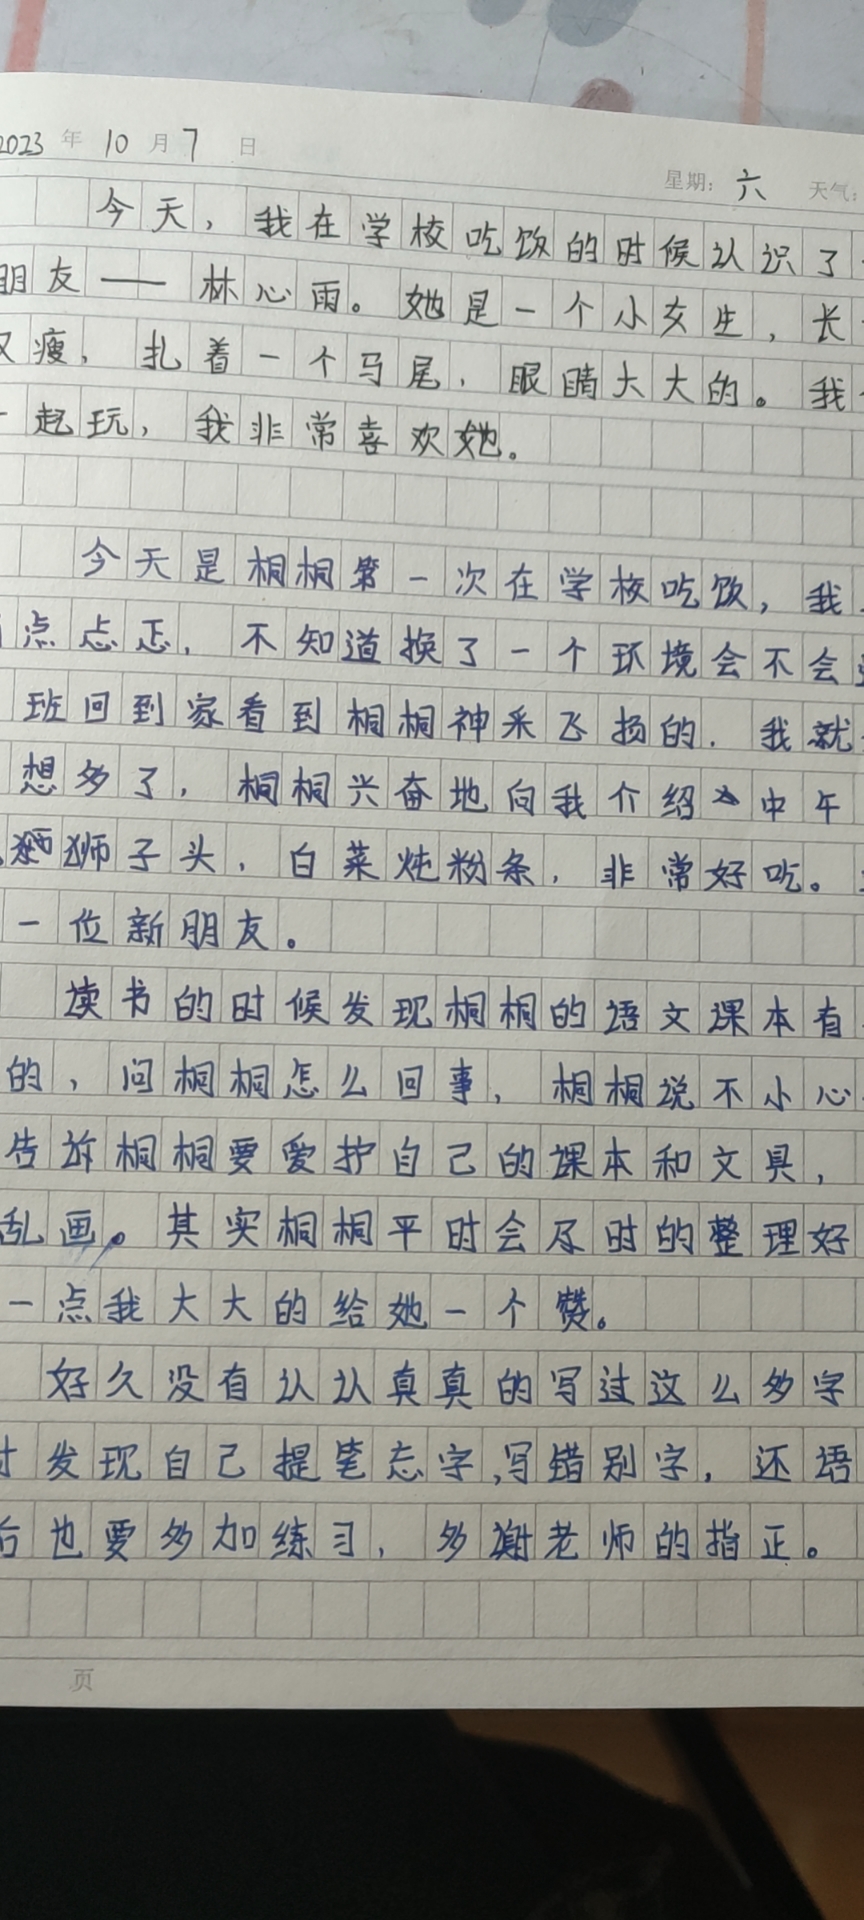 2023 年 10 月 7 日 星期: 六 天气:
今天，我在学校吃饭的时候认识了
朋友——林心雨。她是一个小女生，长
又瘦，扎着一个马尾，眼睛大大的。我
一起玩，我非常喜欢她。
今天是桐桐第一次在学校吃饭，我
点忐忑，不知道换了一个环境会不会
班回到家看到桐桐神采飞扬的，我就
想多了，桐桐兴奋地向我介绍中午
狮子头，白菜炖粉条，非常好吃。
一位新朋友。
读书的时候发现桐桐的语文课本有
的，问桐桐怎么回事，桐桐说不小心
告诉桐桐要爱护自己的课本和文具，
乱画。其实桐桐平时会及时的整理好
一点我大大的给她一个赞。
好久没有认认真真的写过这么多字
发现自己提笔忘字，写错别字，还语
后也要多加练习，多谢老师的指正。
页